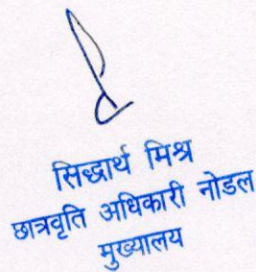 सिद्धार्थ मिश्र
छात्रवृति अधिकारी नोडल
मुख्यालय